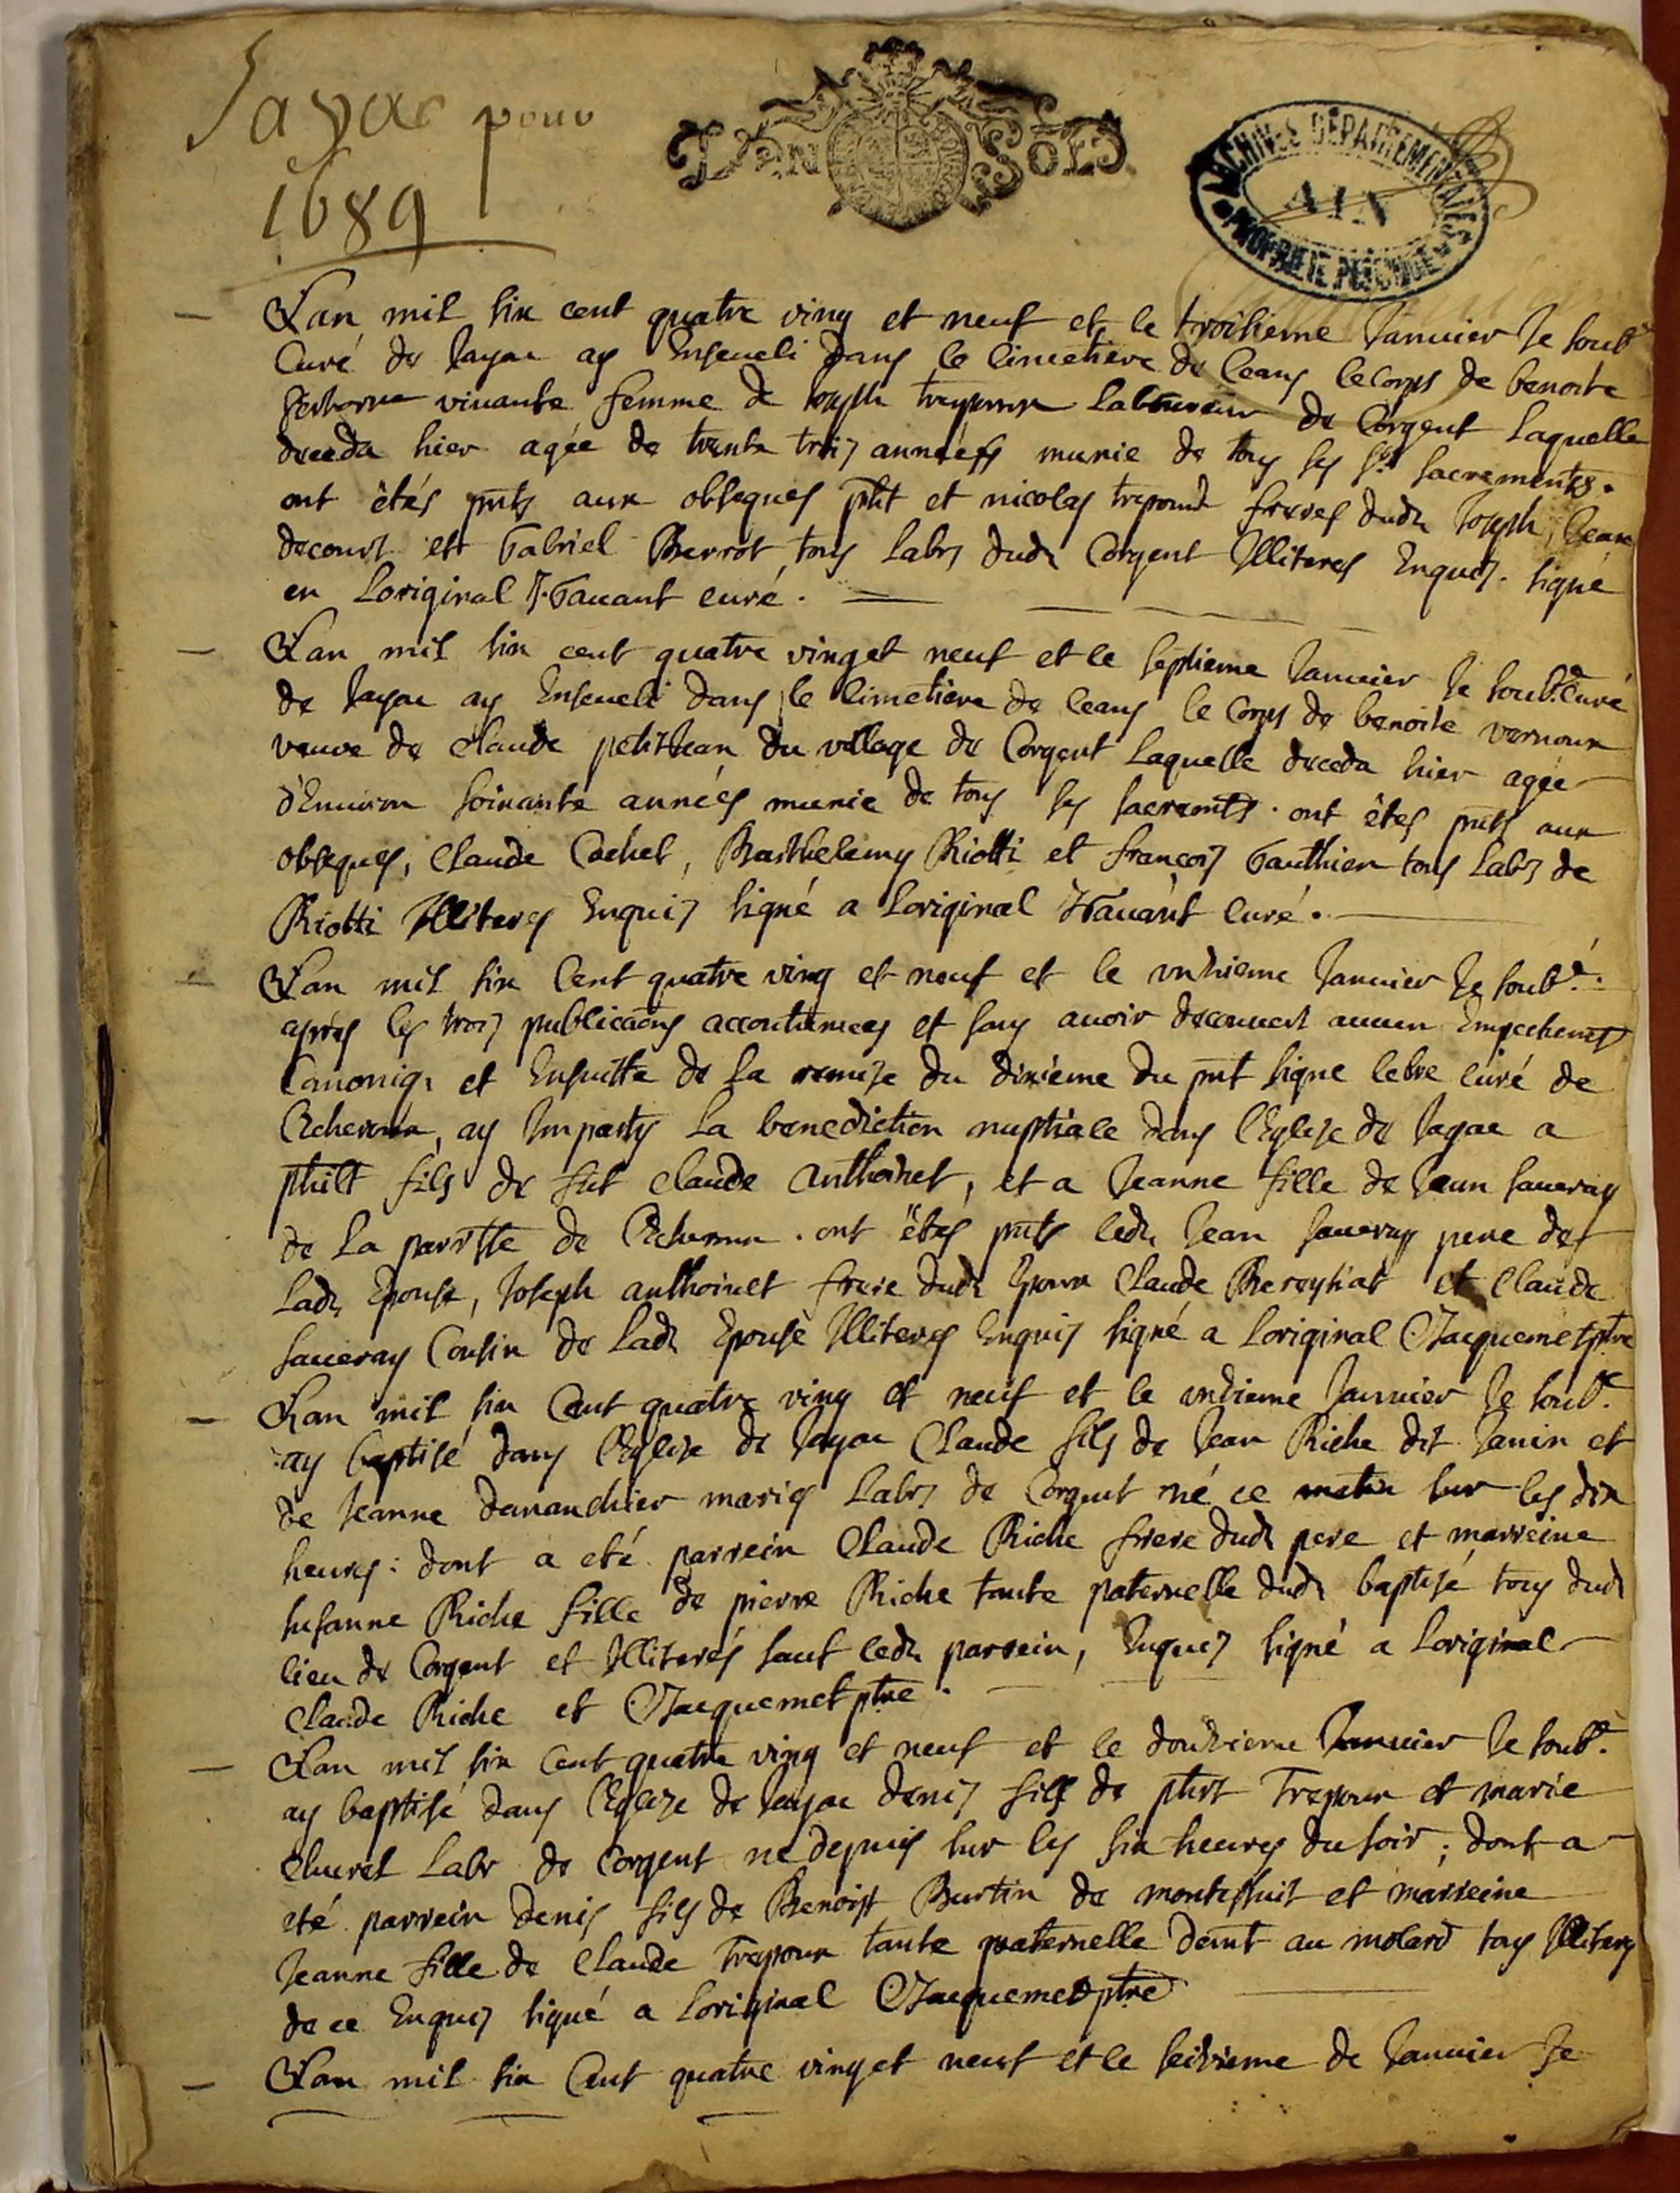 Jayac pour
1689
UN SOLS
ARCHIVES DÉPARTEMENTALES
AIN
PROPRIÉTÉ PUBLIQUE
L'an mil six cent quatre ving et neuf et le troisieme Januier Je soub.é
Curé de Jayac ay Enseueli dans le Cimetiere de ceans le corps de benoite
viuante femme de Joseph Laboureur de Corgent Laquelle
deceda hier agée de trente trois années munie de tous ses Sts sacrements.
ont êtés pnts aux obseques phlt et nicolas frères dudt Joseph, Jean
decourt et Gabriel Berrot tous labrs dudt Corgent Illiteres Enquis. signé
en Loriginal J. Gauant curé.
L'an mil six cent quatre vinget neuf et le septieme Januier Je soub.é Curé
de Jayac ay Enseueli dans le Cimetiere de ceans le corps de benoite vernoux
veuve de Claude petitJean du village de Corgent Laquelle deceda hier agée
d'Enuiron soixante années munie de tous ses sacremts. ont êtes pnts aux
obseques, Claude Cochet, Barthelemy Riotti et françois Gauthier tous labrs de
Riotti Illiteres Enquis signé a Loriginal JGauant Curé.
L'an mil six Cent quatre ving et neuf et le vnzieme Januier Je soub.é.
apres les trois publicaons accoutumées et sans auoir decouuert aucun Empechemt
Canoniq. et Ensuitte de la remise du dixième du pnt signe curé de
ay Imparty La benediction nuptiale dans l'Eglize de Jayac a
phlt fils de fut Claude anthoinet, et a Jeanne fille de Jean saueray
de La parroisse de . ont êtes pnts ledt Jean saueray pere de
Ladt Epouse, Joseph anthoinet frere dudt Epoux Claude Bereyziat et Claude
saueray Cousin de Ladt Epouse Illiteres Enquis signé a Loriginal CJacquemet ptre
L'an mil six Cent quatre ving et neuf et le vnzieme Januier Je soub.é
ay baptisé dans l'Eglize de Jayac Claude fils de Jean Riche dit Janin et
de Jeanne danandhier mariés Labrs de Corgent né ce matin sur les dix
heures: dont a eté parrein Claude Riche frere dudt pere et marreine
susanne Riche fille de pierre Riche tante paternelle dudt baptisé tous dudt
lieu de Corgent et Illiterés sauf ledt parrein, Enquis signé a Loriginal
Claude Riche et CJacquemet ptre.
L'an mil six Cent quatre ving et neuf et le douzieme Januier Je soub.é
ay baptisé dans l'Eglize de Jayac denis fils de phlt Trepoux et marie
Labr de Corgent ne depuis sur les six heures du soir; dont a
eté parrein denis fils de Benoist Burtin de et marreine
Jeanne fille de Claude Trepoux tante paternelle demt au molard tous Illiteres
de ce Enquis signé a Loriginal CJacquemet ptre
L'an mil six Cent quatre vinget neuf et le seizieme de Januier Je